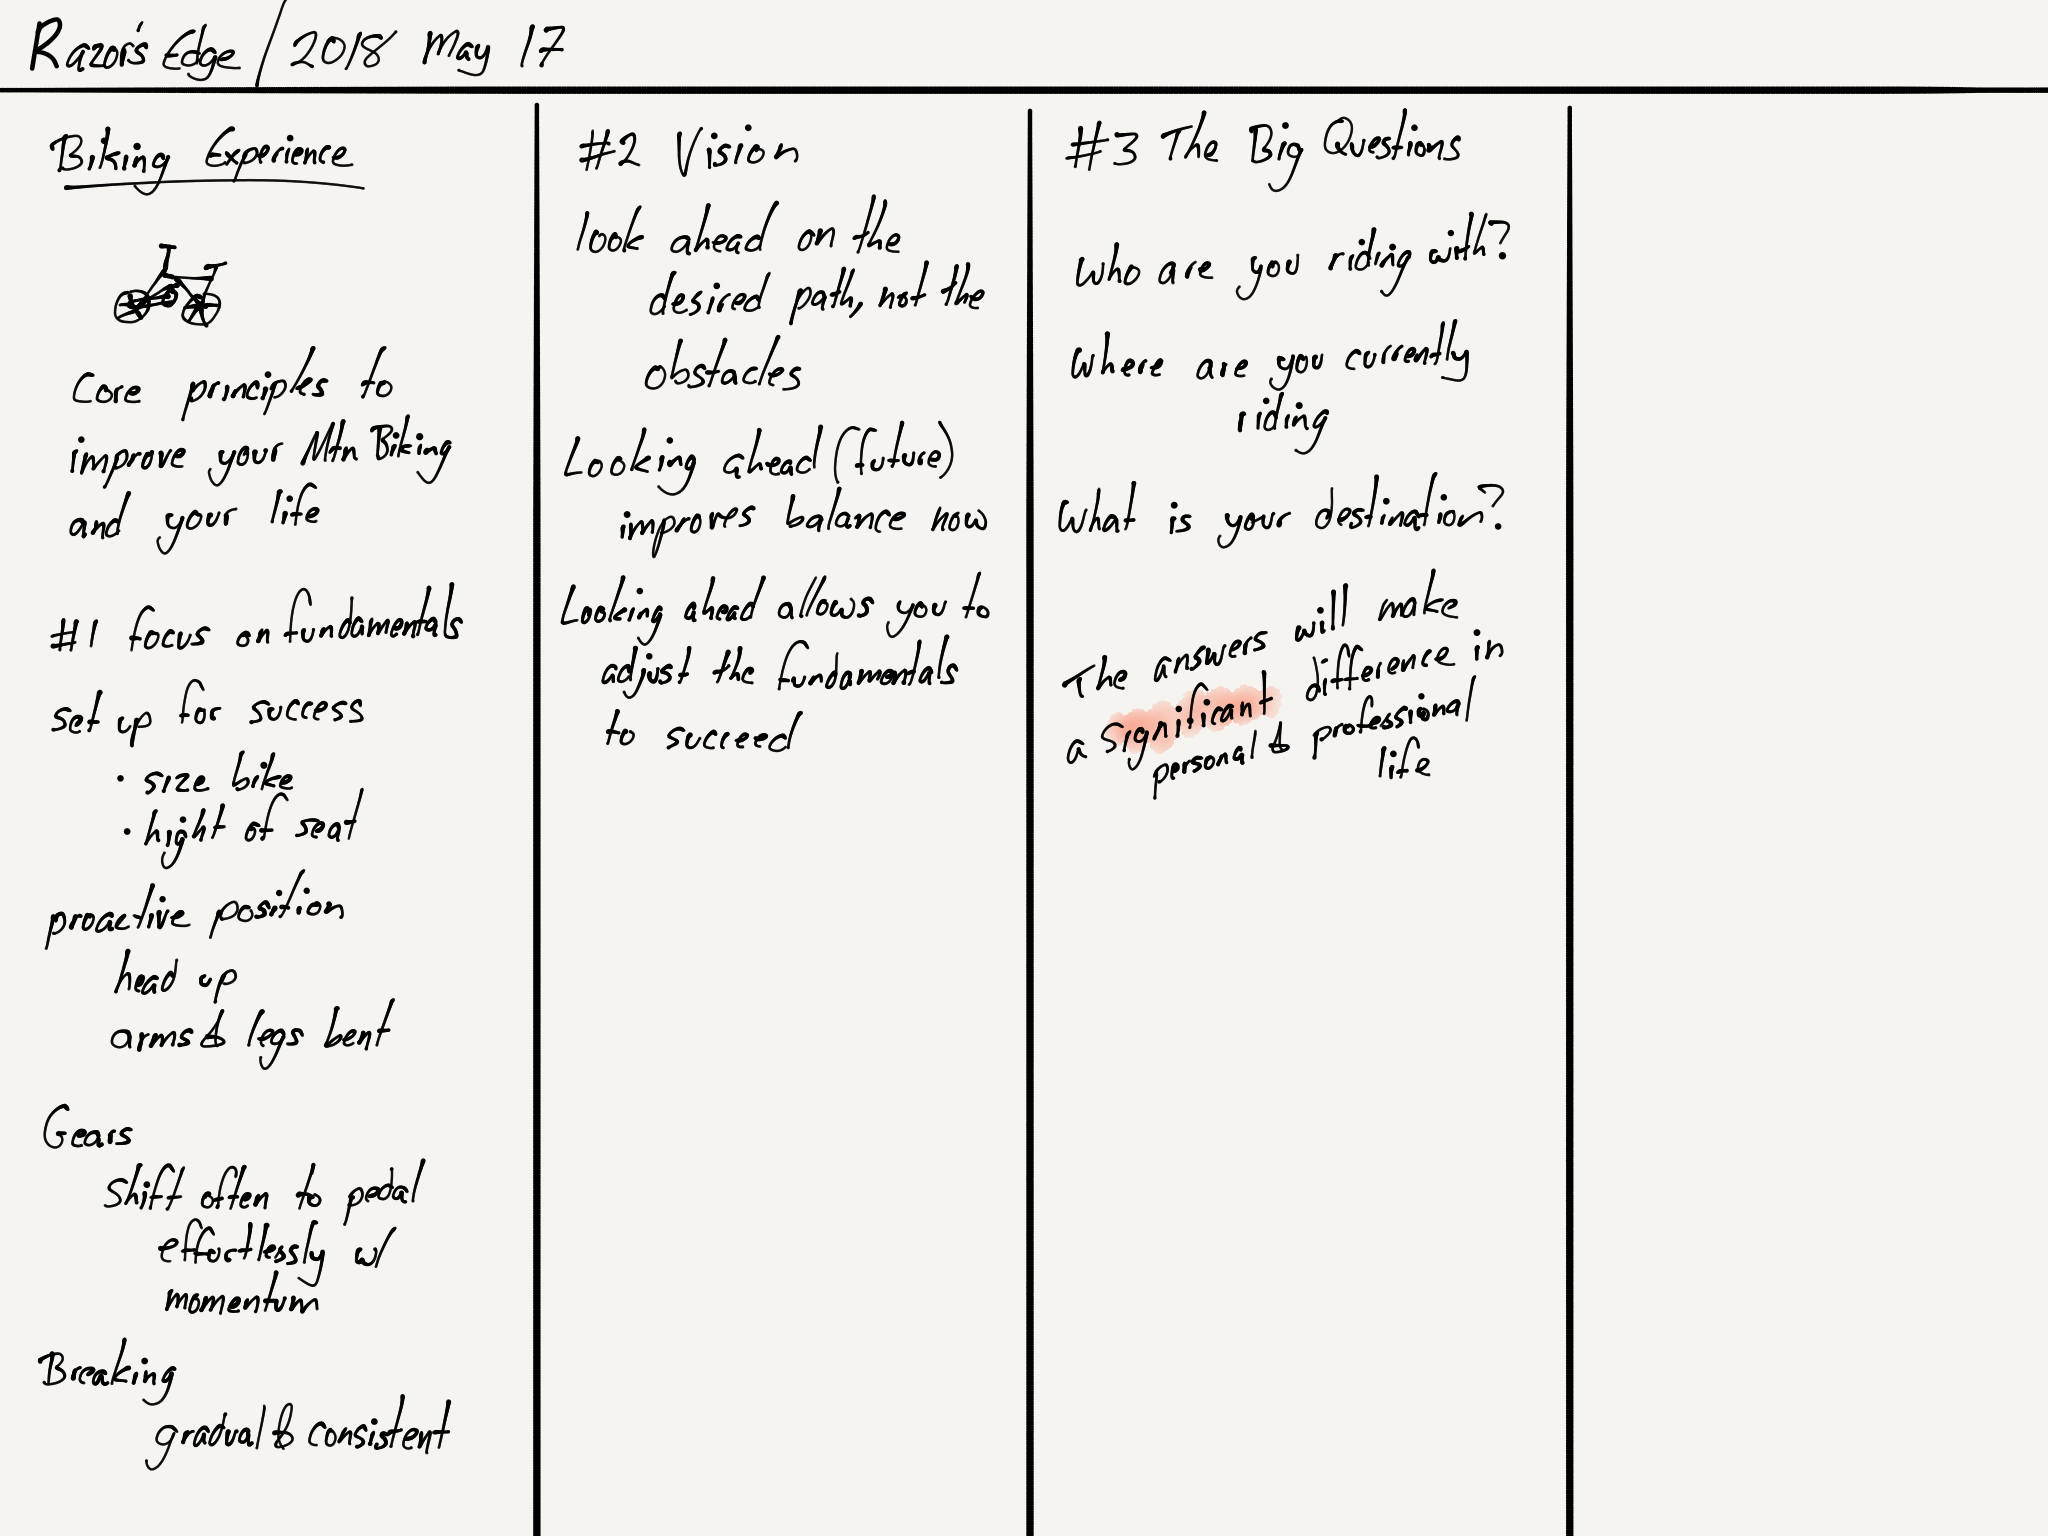 Razor's Edge / 2018 May 17
Biking Experience
Core principles to
improve your Mtn Biking
and your life
#1 focus on fundamentals
set up for success
• size bike
• hight of seat
proactive position
head up
arms & legs bent
Gears
Shift often to pedal
effortlessly w/
momentum
Breaking
gradual & consistent
#2 Vision
look ahead on the
desired path, not the
obstacles
Looking ahead (future)
improves balance now
Looking ahead allows you to
adjust the fundamentals
to succeed
#3 The Big Questions
Who are you riding with?
Where are you currently
riding
What is your destination?
The answers will make
a significant difference in
personal & professional
life